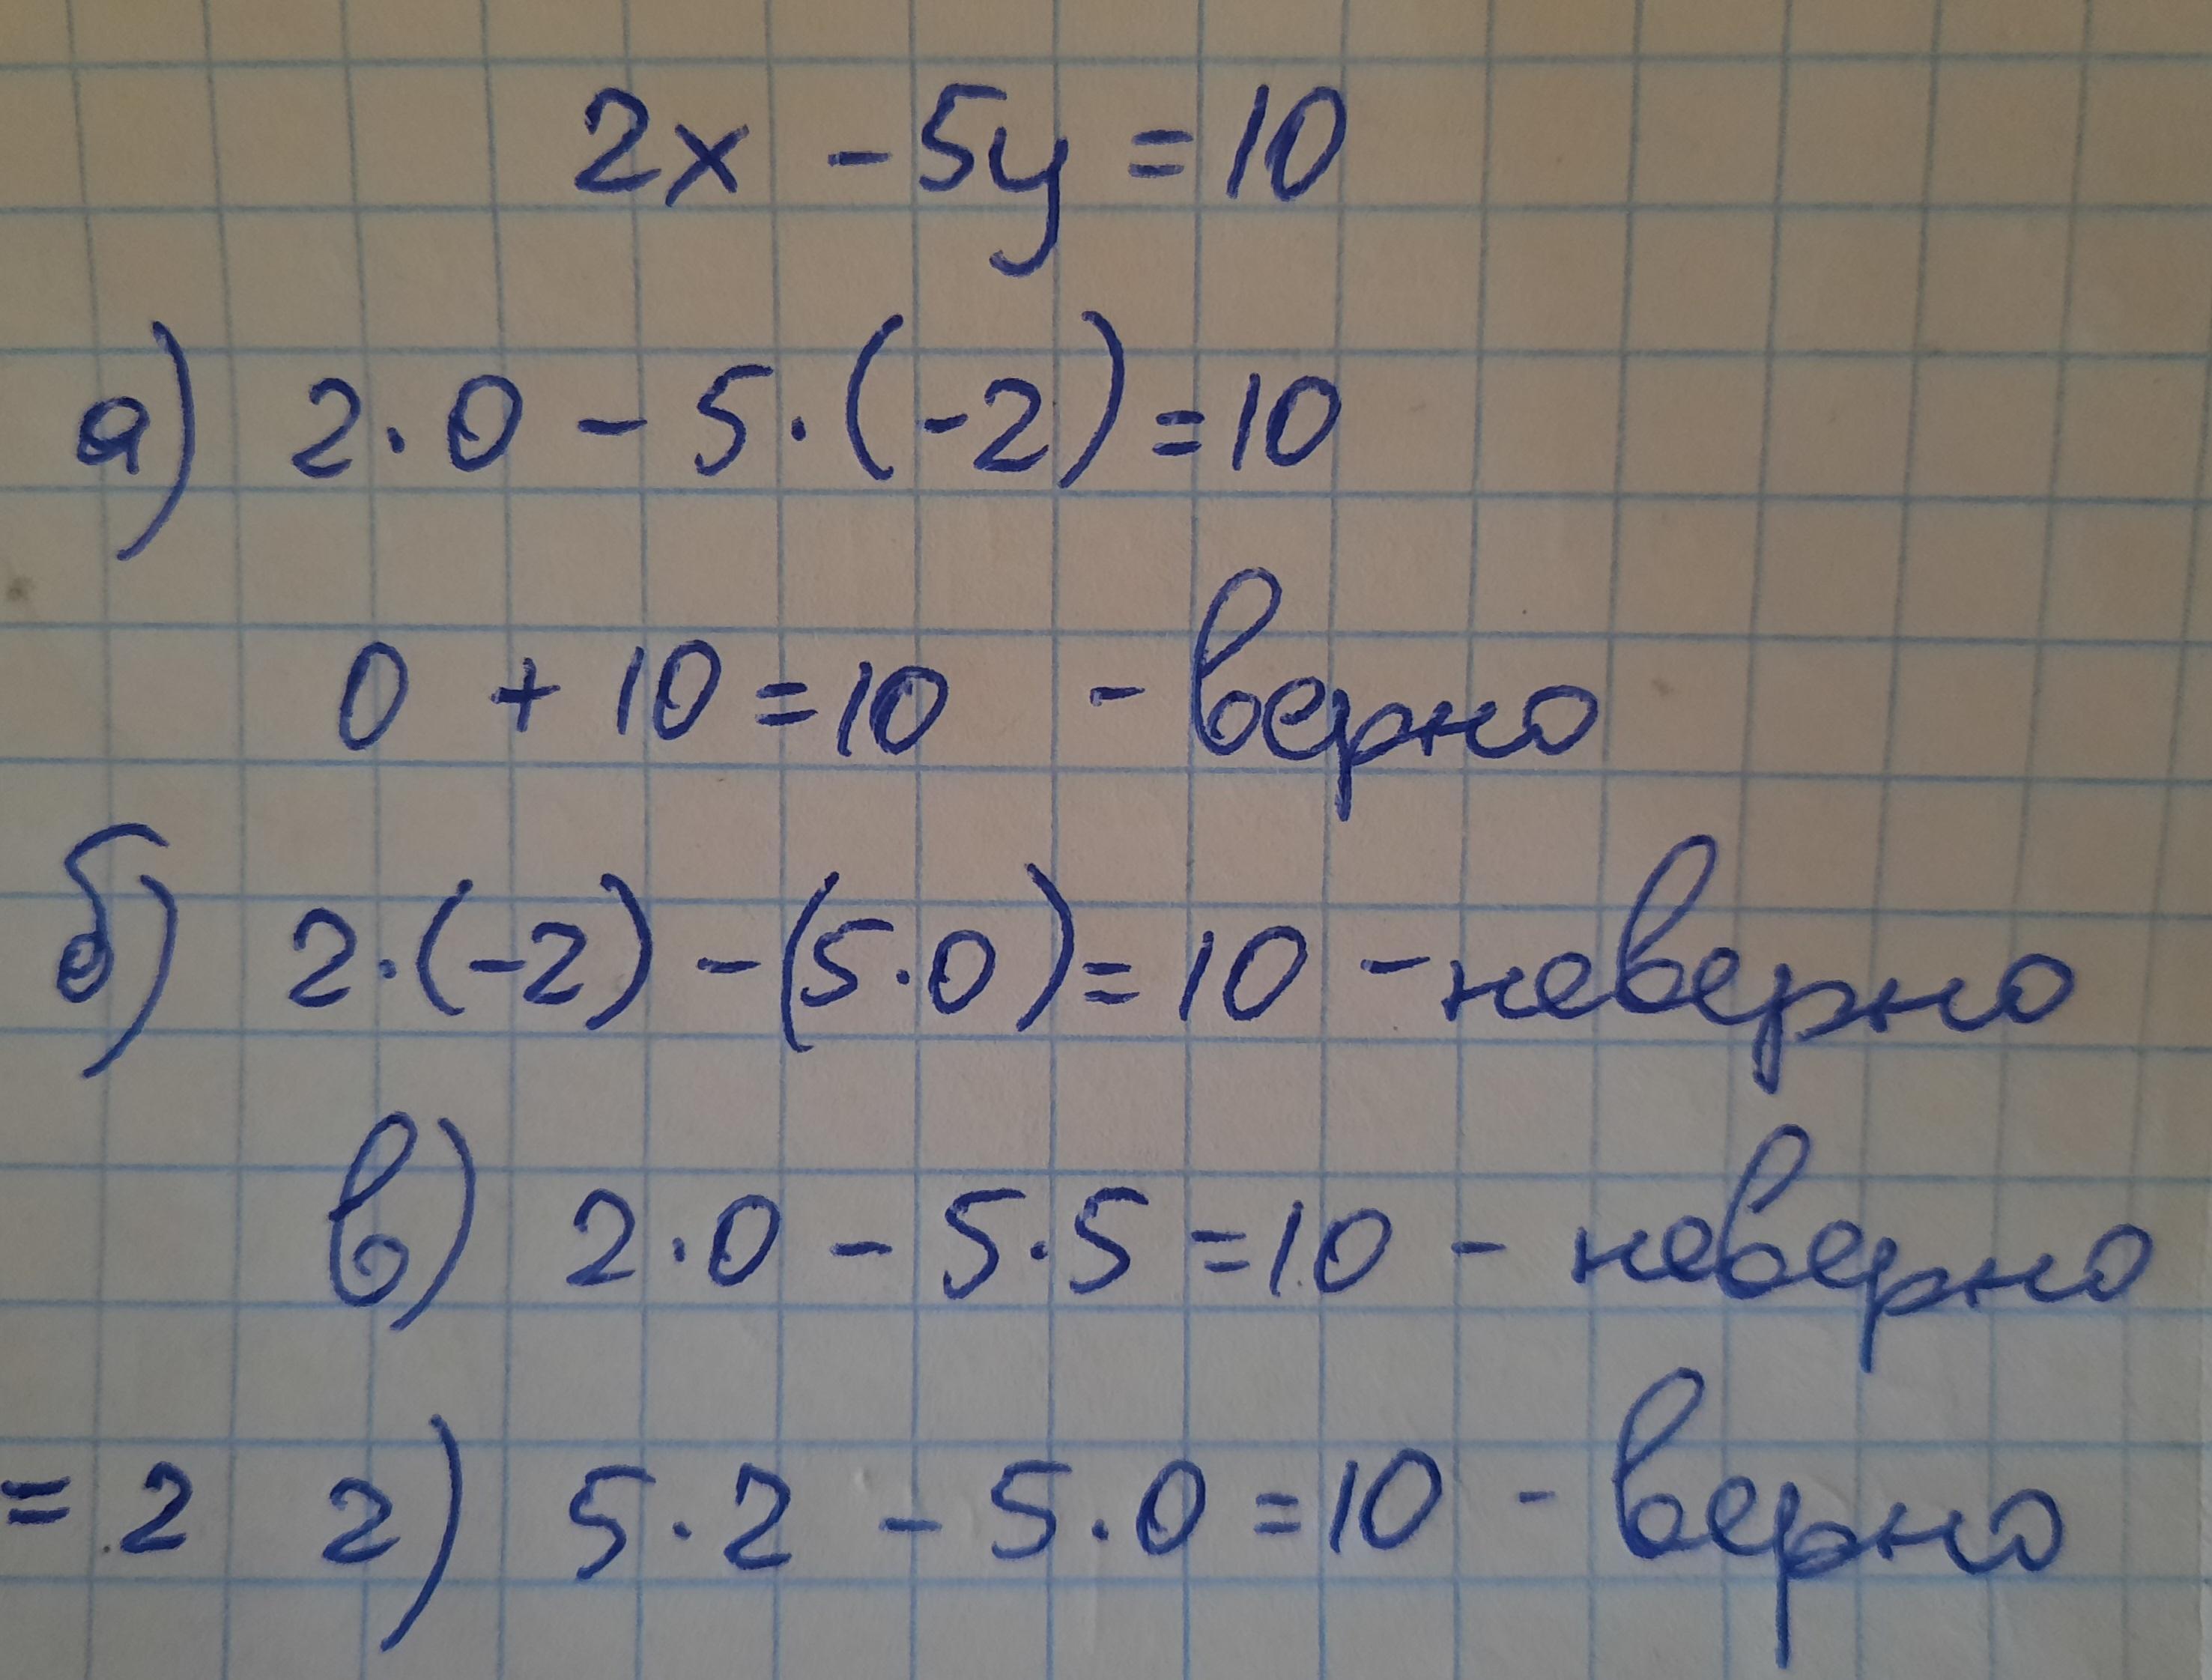 2x - 5y = 10
а) 2·0 - 5·(-2) = 10
0 + 10 = 10 - верно
б) 2·(-2) - (5·0) = 10 - неверно
в) 2·0 - 5·5 = 10 - неверно
= 2 г) 5·2 - 5·0 = 10 - верно